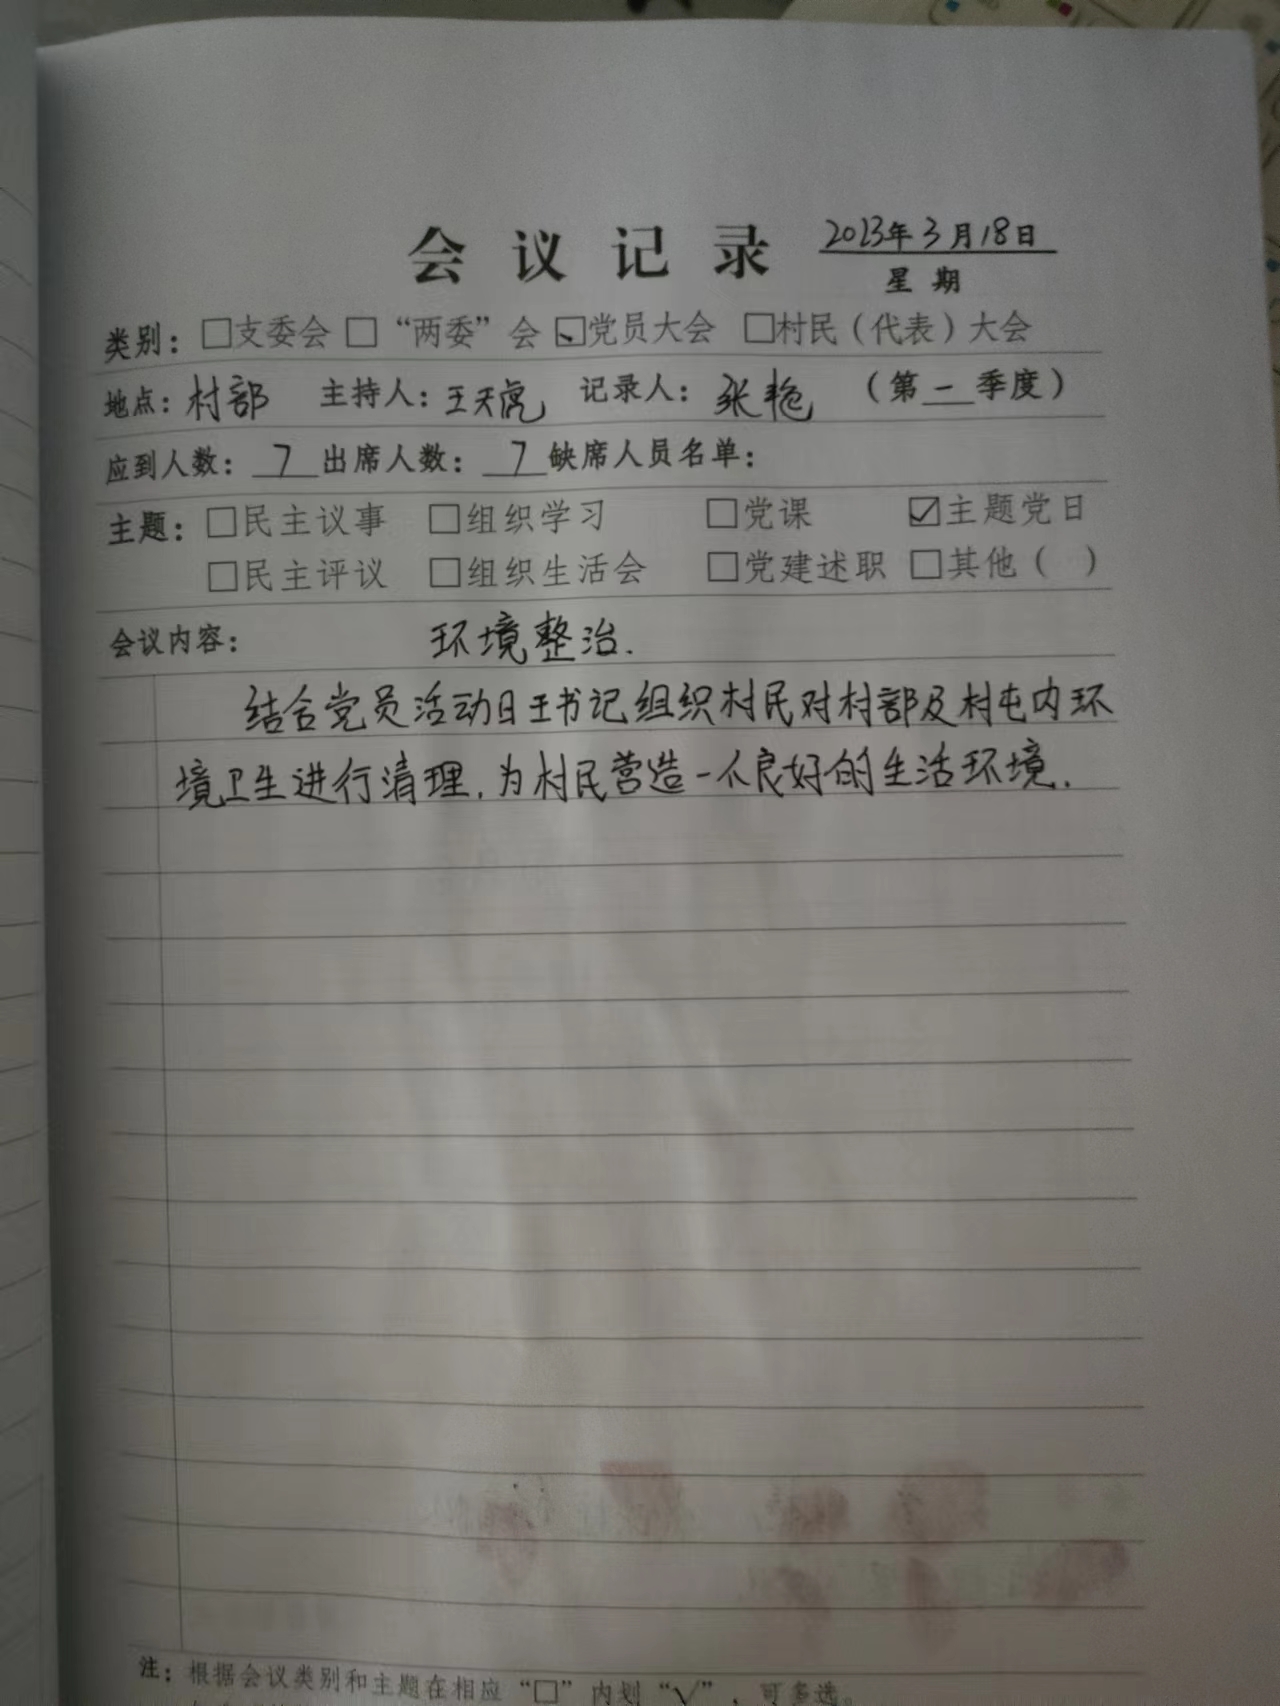 会议记录 2023年3月18日
星期
类别：□支委会 □“两委”会 ☑党员大会 □村民（代表）大会
地点：村部 主持人：王天虎 记录人：张艳 （第一季度）
应到人数：7 出席人数：7 缺席人员名单：
主题：□民主议事 □组织学习 □党课 ☑主题党日
□民主评议 □组织生活会 □党建述职 □其他（ ）
会议内容： 环境整治.
结合党员活动日王书记组织村民对村部及村屯内环
境卫生进行清理.为村民营造一个良好的生活环境.
注：根据会议类别和主题在相应“□”内划“√”，可多选。